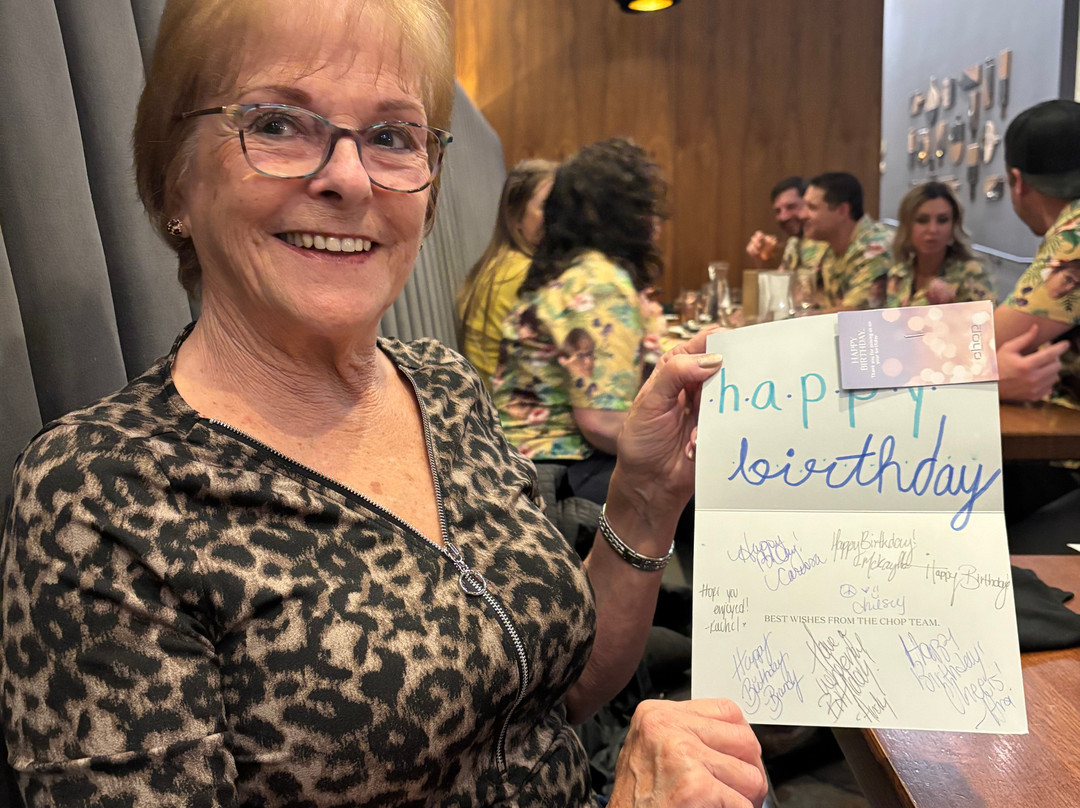 HAPPY
BIRTHDAY,
chop
happy
birthday
Happy
B Day!
Carissa
Happy Birthday!
Happy Birthday!
Hope you
enjoyed!
-Rachel
Chelsey
BEST WISHES FROM THE CHOP TEAM.
Happy
Birthday
Brandy
Have a
Birthday!
Happy
birthday